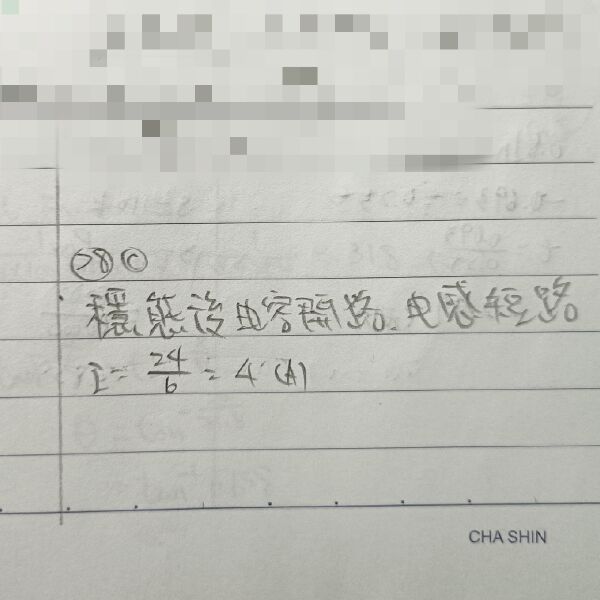 28 C
穩態後电容開路.电感短路
I = 24/6 = 4 (A)
CHA SHIN